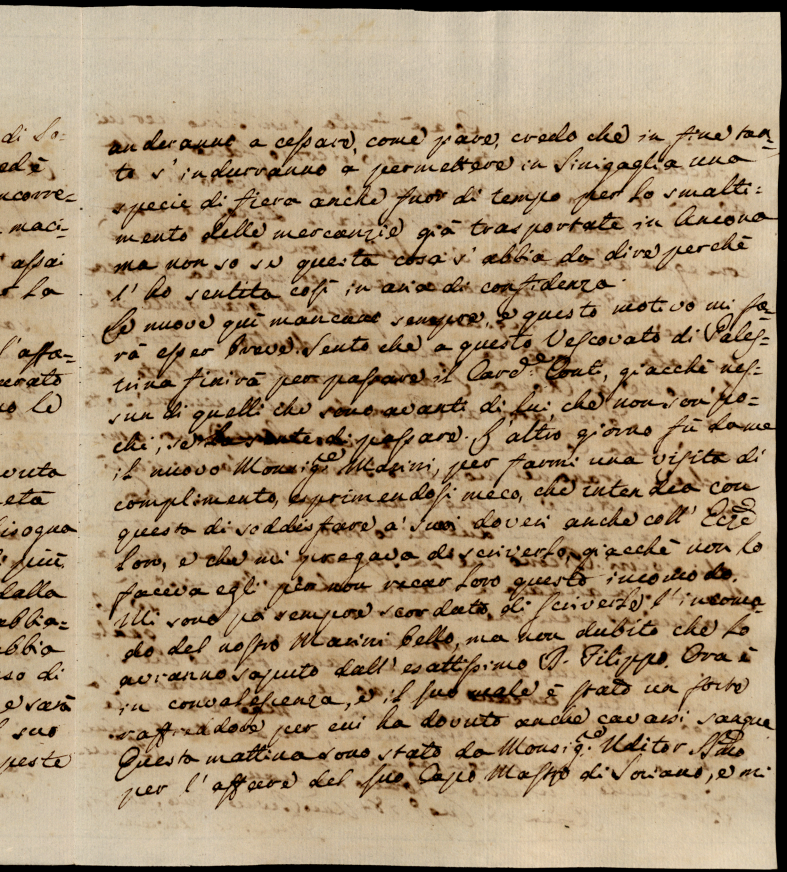 di So=
ed è
ncorre=
maci=
assai
La
l'affa=
urato
no le
vuta
eta
bisogna
più
dalla
abbia=
bbia
so di
e sarà
l suo
peste
anderanno a cessare, come pare, credo che in fine tan=
to s'indurranno a permettere in Sinigaglia una
specie di fiera anche fuor di tempo per lo smalti=
mento delle mercanzie già trasportate in Ancona
ma non so se questa cosa s'abbia da dire perchè
l'ho sentita così in aria di confidenza.
Le nuove quì mancano sempre, e questo motivo mi fa=
rà esser breve. Sento che a questo Vescovato di Pales=
trina finirà per passare il Card.e Conti, giacchè nes=
sun di quelli che sono avanti di lui, che non son po=
chi, se di passare. L'altro giorno fù da me
il nuovo Monsig.re Marini, per farmi una visita di
complimento, esprimendosi meco, che intendea con
questa di soddisfare a' suoi doveri anche coll' Ecc.e
Loro, e che mi pregava di scriverlo, giacchè non lo
faceva egli per non recar Loro questo incomodo.
Mi sono poi sempre scordato di scriverle l'incomo=
do del nostro Marini bello, ma non dubito che lo
avranno saputo dall'esattissimo D. Filippo. Ora è
in convalescenza, e il suo male è stato un forte
raffreddore per cui ha dovuto anche cavarsi sangue
Questa mattina sono stato da Monsig.re Uditor SS.mo
per l'affare del suo Capo Mastro di Soriano, e mi